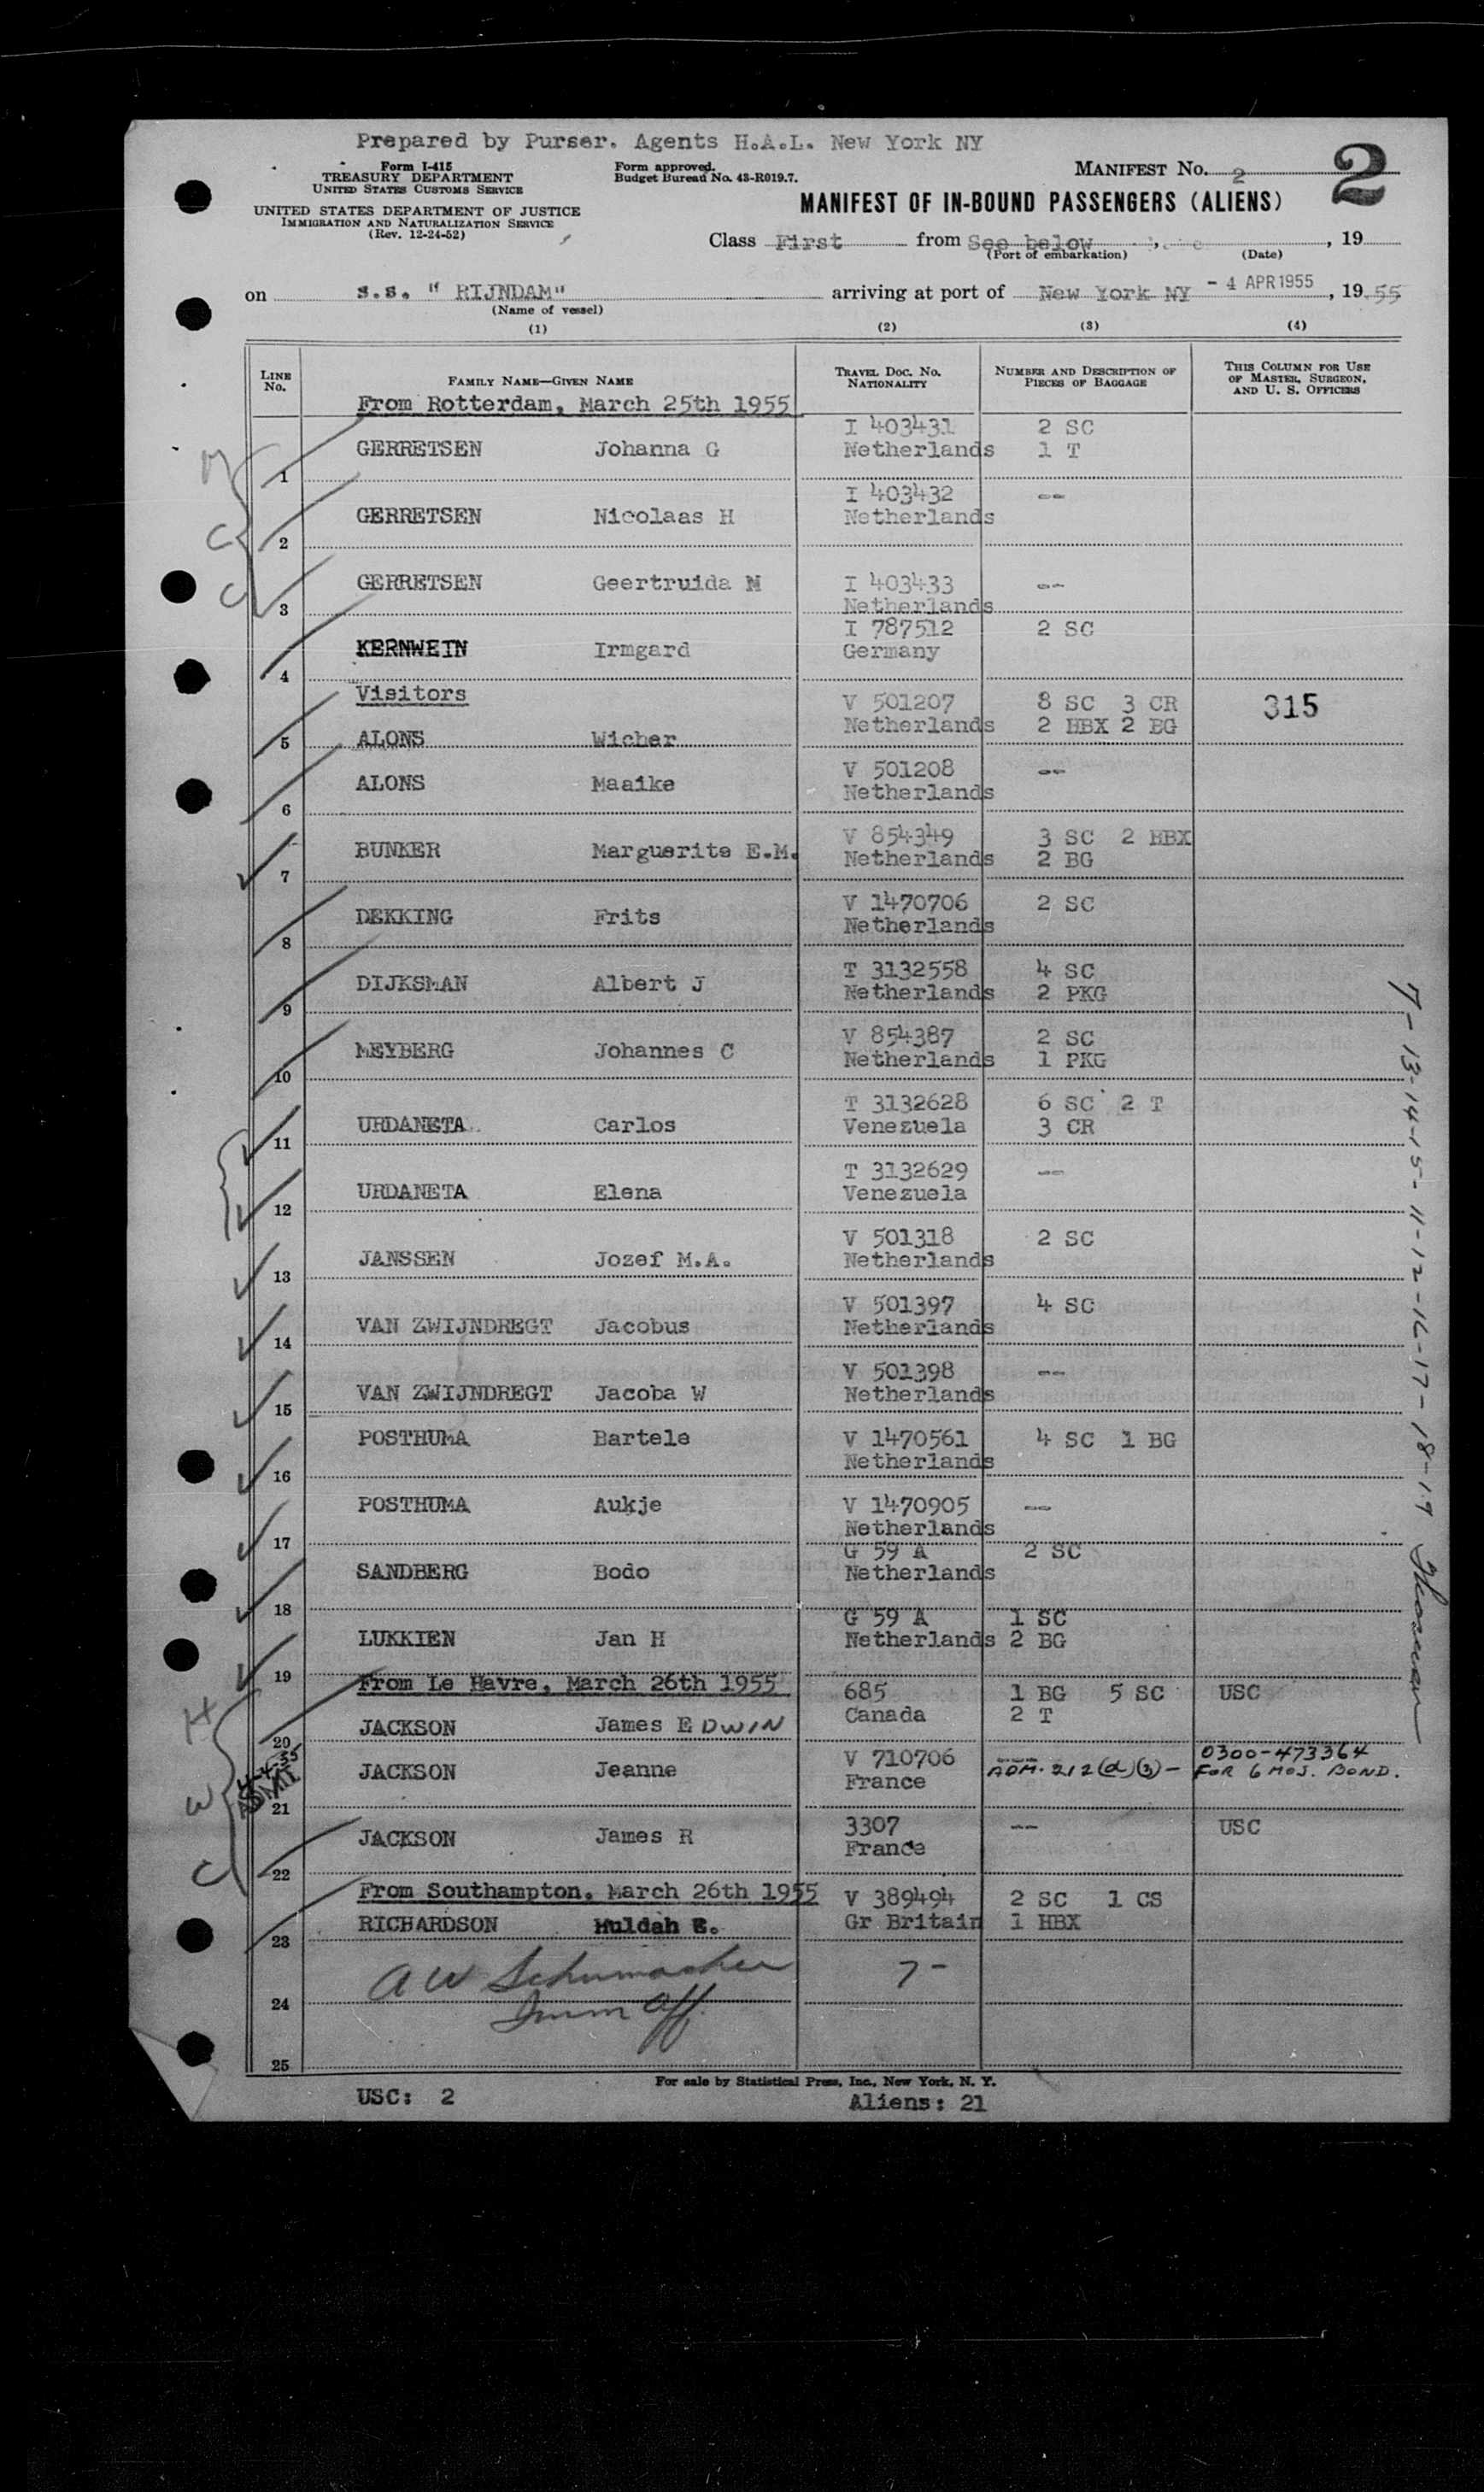 Prepared by Purser. Agents H.A.L. New York NY
Form I-415
TREASURY DEPARTMENT
UNITED STATES CUSTOMS SERVICE
UNITED STATES DEPARTMENT OF JUSTICE
IMMIGRATION AND NATURALIZATION SERVICE
(Rev. 12-24-52)
Form approved.
Budget Bureau No. 43-R019.7.
MANIFEST No. 2
2
MANIFEST OF IN-BOUND PASSENGERS (ALIENS)
Class First from See below , , 19
(Port of embarkation) (Date)
on s.s. " RIJNDAM" arriving at port of New York NY - 4 APR 1955, 19 55
(Name of vessel)
(1) (2) (3) (4)
LINE No. FAMILY NAME—GIVEN NAME TRAVEL DOC. NO. NATIONALITY NUMBER AND DESCRIPTION OF PIECES OF BAGGAGE THIS COLUMN FOR USE OF MASTER, SURGEON, AND U. S. OFFICERS
From Rotterdam, March 25th 1955
M
I 403431 2 SC
1 GERRETSEN Johanna G Netherlands 1 T
C
I 403432 --
2 GERRETSEN Nicolaas H Netherlands
C
3 GERRETSEN Geertruida M I 403433 --
Netherlands
I 787512 2 SC
4 KERNWEIN Irmgard Germany
Visitors
V 501207 8 SC 3 CR 315
Netherlands 2 HBX 2 BG
5 ALONS Wicher
V 501208 --
6 ALONS Maaike Netherlands
V 854349 3 SC 2 HBX
7 BUNKER Marguerite E.M. Netherlands 2 BG
V 1470706 2 SC
8 DEKKING Frits Netherlands
T 3132558 4 SC
9 DIJKSMAN Albert J Netherlands 2 PKG
V 854387 2 SC
10 MEYBERG Johannes C Netherlands 1 PKG
T 3132628 6 SC 2 T
11 URDANETA Carlos Venezuela 3 CR
T 3132629 --
12 URDANETA Elena Venezuela
V 501318 2 SC
13 JANSSEN Jozef M.A. Netherlands
V 501397 4 SC
14 VAN ZWIJNDREGT Jacobus Netherlands
V 501398 --
15 VAN ZWIJNDREGT Jacoba W Netherlands
16 POSTHUMA Bartele V 1470561 4 SC 1 BG
Netherlands
17 POSTHUMA Aukje V 1470905 --
Netherlands
G 59 A 2 SC
18 SANDBERG Bodo Netherlands
G 59 A 1 SC
19 LUKKIEN Jan H Netherlands 2 BG
From Le Havre, March 26th 1955
H
685 1 BG 5 SC USC
20 JACKSON James EDWIN Canada 2 T
W
4-4-55
21 JACKSON Jeanne V 710706 --- 0300-473364
France ADM. 212(d)(3)- FOR 6 MOS. BOND.
C
3307 -- USC
22 JACKSON James R France
From Southampton, March 26th 1955
V 389494 2 SC 1 CS
23 RICHARDSON Huldah E. Gr Britain 1 HBX
A W Schumacher 7-
24 Imm Off.
25
For sale by Statistical Press, Inc., New York, N. Y.
USC: 2 Aliens: 21
7-13-14-15-11-12-16-17-18-19